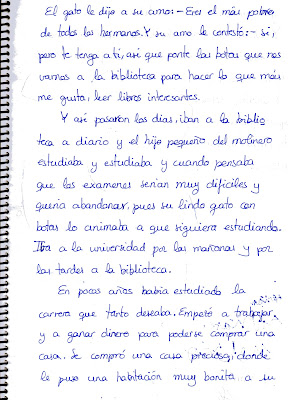 El gato le dijo a su amo: - Eres el más pobre
de todos los hermanos. Y su amo le contestó: - Si,
pero te tengo a ti, así que ponte las botas que nos
vamos a la biblioteca para hacer lo que más
me gusta, leer libros interesantes.
Y así pasaron los días, iban a la biblio
teca a diario y el hijo pequeño del molinero
estudiaba y estudiaba y cuando pensaba
que los examenes serían muy difíciles y
quería abandonar, pues su lindo gato con
botas lo animaba a que siguiera estudiando.
Iba a la universidad por las mañanas y por
las tardes a la biblioteca.
En pocos años había estudiado la
carrera que tanto deseaba. Empezó a trabajar
y a ganar dinero para poderse comprar una
casa. Se compró una casa preciosa, donde
le puso una habitación muy bonita a su